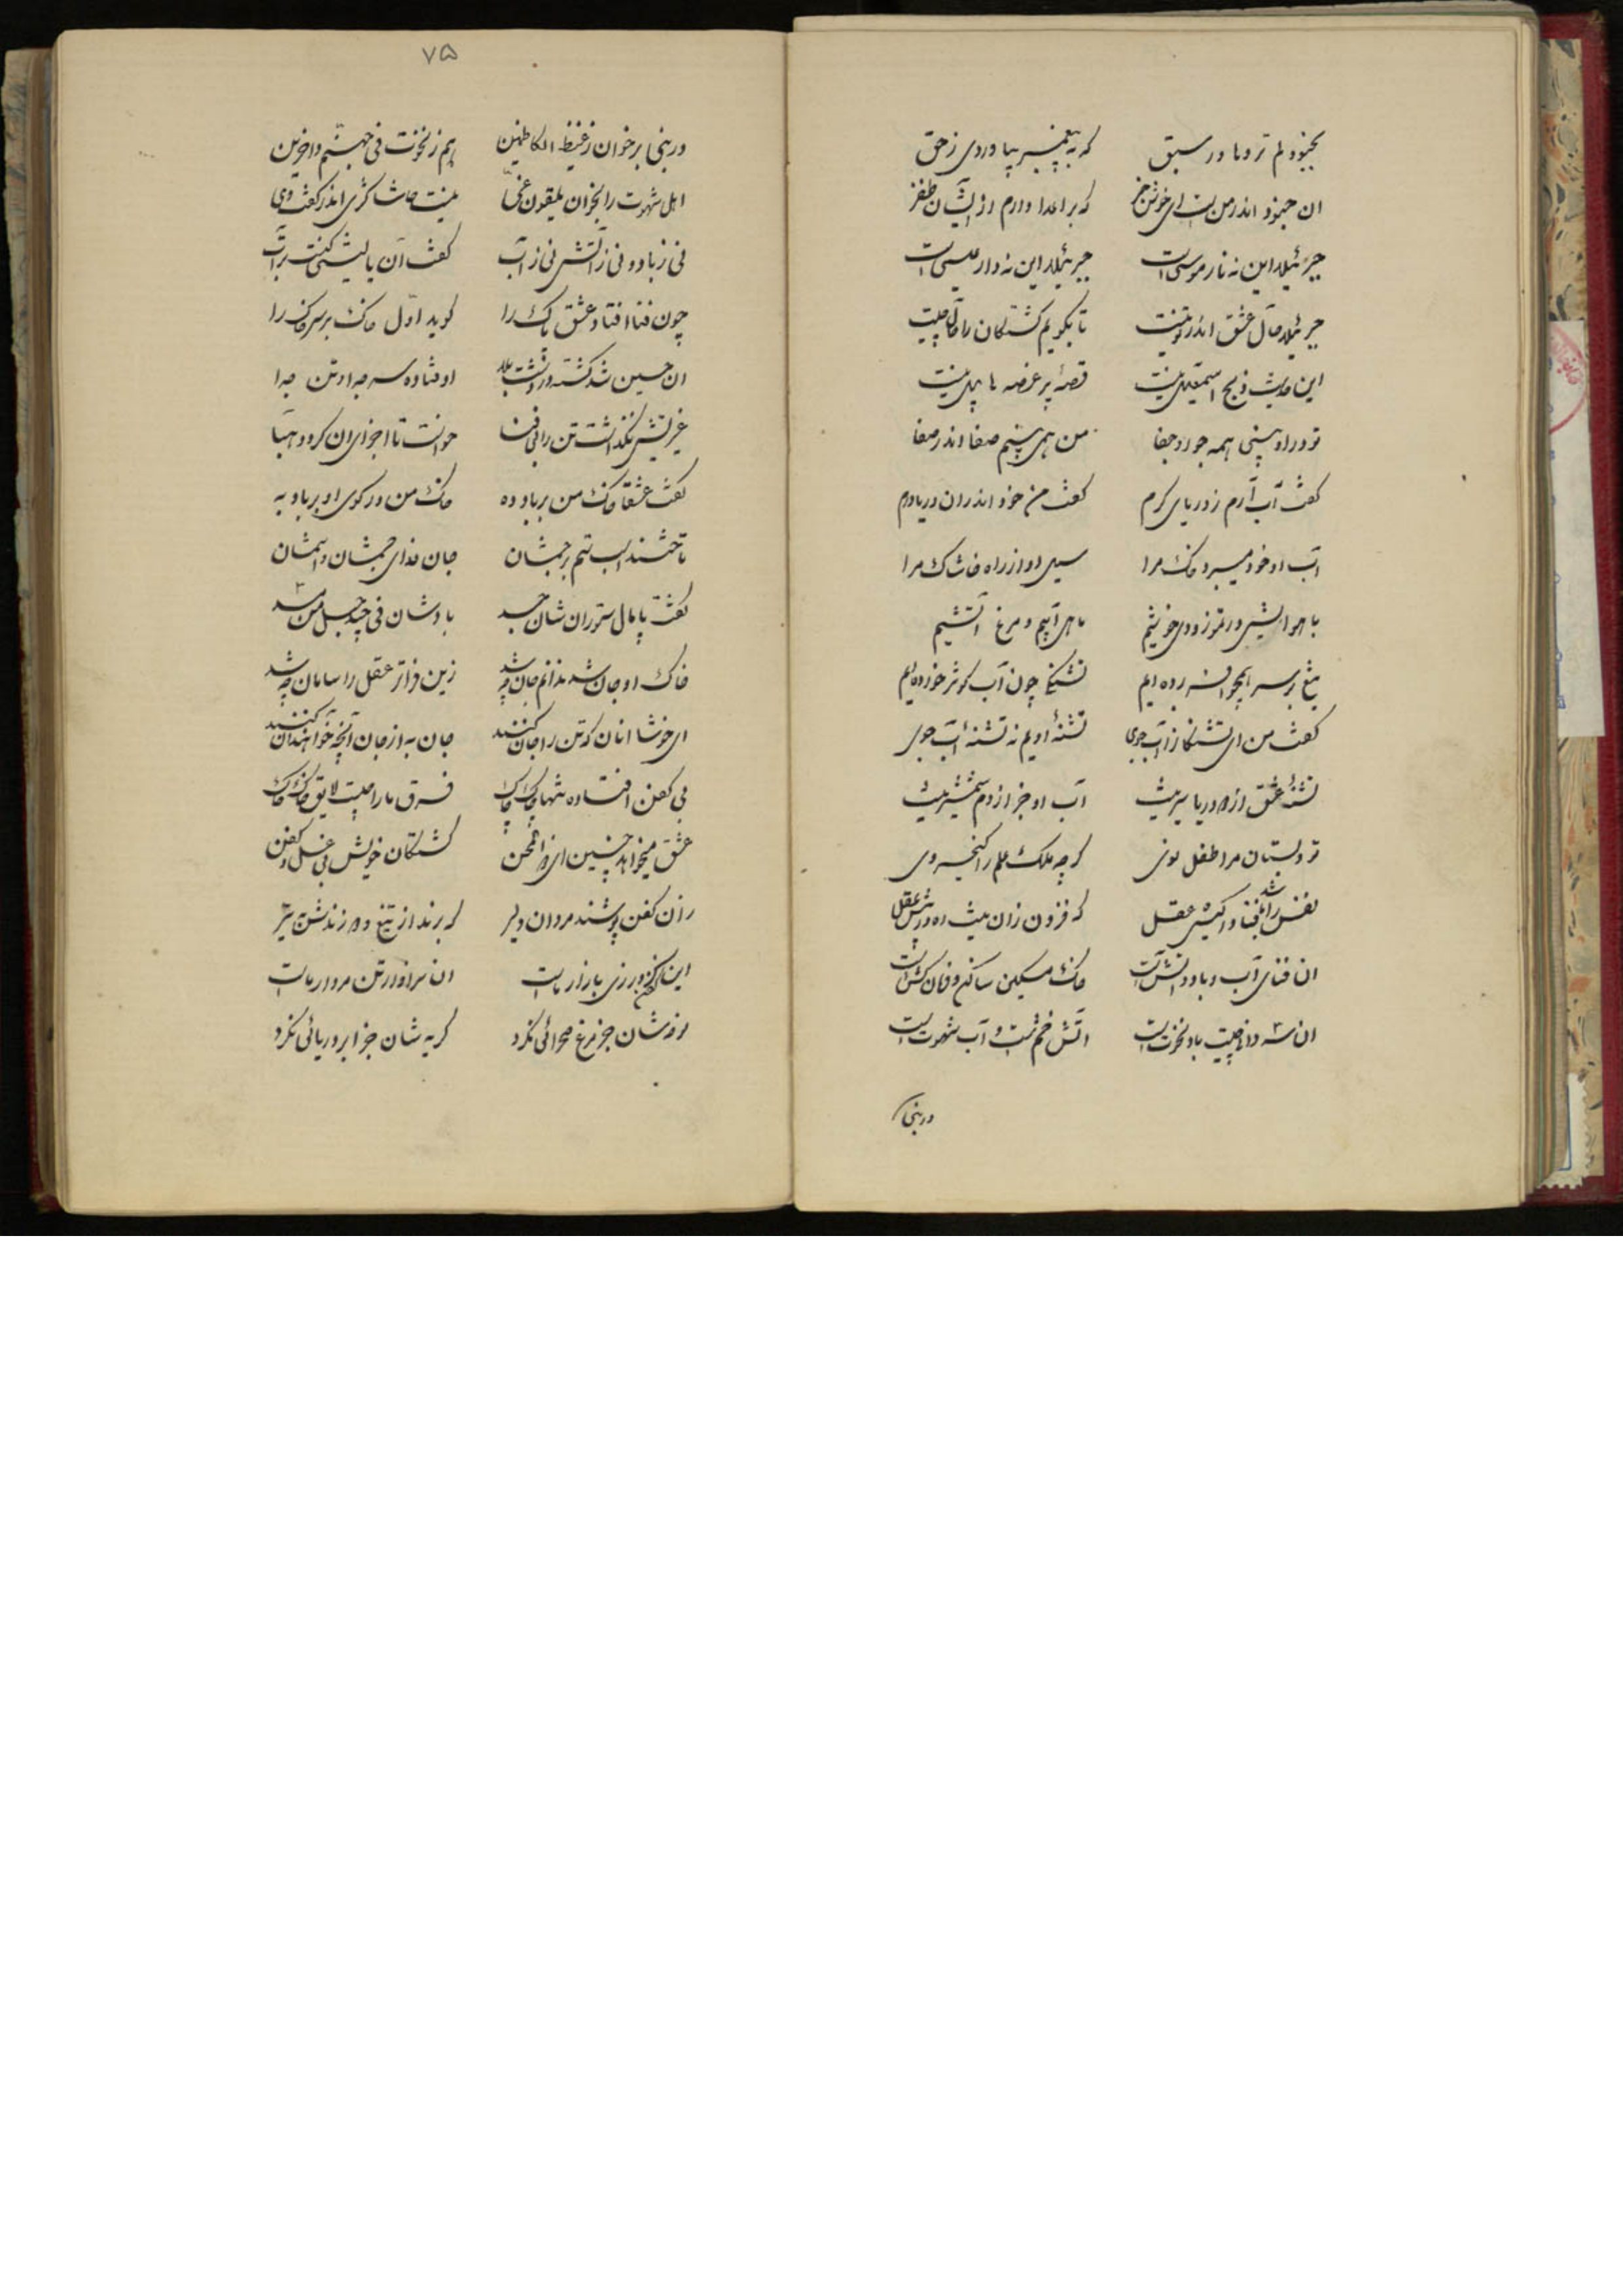 که به پیغمبر بیاوردی ز حق
ان جنود اندر من است ای خوش خبر که بر اعدا دارم از ایشان ظفر
جبرئیلا این نه نار موسی است جبرئیلا این نه دار عیسی است
جبرئیلا حال عشق اندر تو نیست تا بگویم کشتگان را حال چیست
این حدیث ذبح اسمعیل نیست قصهٔ پر غصه هابیل نیست
تو در او بینی همه جور و جفا من همی بینم صفا اندر صفا
گفت آب آرم ز دریای کرم گفت من خود اندران دریا درم
آب او خود میبرد خاک مرا سیل او از راه خاشاک مرا
با هوایش در تموز و دی خوشیم ماهی آبیم و مرغ آتشیم
تیغ بر سر همچو افسر زده ایم تشنگی چون آب کوثر خورده ایم
گفت من ای تشنگان آب جوی تشنهٔ اویم نه تشنه آب جوی
تشنهٔ عشق از دو دریا سیر نیست آب او جز از دم شمشیر نیست
تو دبستان مرا طفل نوی گرچه ملک علم را کیخسروی
نفس را شد عقل که فزون زان نیست ره در پیش عقل
ان فنای آب و باد و آتش است خاک مسکین ساکن و فرمان کش است
ان سه دانی چیست باد نخوت است آتش خشم است و آب شهوت است
در نبی
۷۵
در نبی بر خوان ز غیظ الکاظمین هم ز نخوت فی جهنم داخرین
اهل شهوت را بخوان یلقون غیا نیست خاشاکی اندر گفت وی
نی ز باد و نی ز آتش نی ز آب گفت آن یا لیتنی کنت تراب
چون فنا افتاد عشق پاک را گوید اول خاک بر سر خاک را
ان حسین شد کشته در دشت بلا اوفتاده سر جدا و تن جدا
غیرتش نگذاشت تن را بی فنا خواست تا اجزای ان گردد هبا
گفت عشقا خاک من بر باد ده خاک من در کوی او بر باد به
تاختند اسب ستم بر جسمشان جان فدای جسمشان و اسمشان
گفت پامال ستوران شان جسد بادشان فی جیدها حبل من مسد
خاک او جان شد ندانم جان چه شد زین فراتر عقل را سامان چه شد
ای خوشا آنان که تن را جان کنند جان به از جان آنچه خواهند آن کنند
بی کفن افتاده تنها چاک چاک فرق ما را نیست لایق خاک خاک
عشق میخواهد چنین ای کشتگان خویش بی غسل و کفن
زان کفن پوشند مردان دلیر که برند از تیغ و
این کفن ورزی بازار ماست ان سزاوار تن مردار ماست
نوحه شان جز مرغ صحرائی نکرد گریه شان جز ابر دریائی نکرد